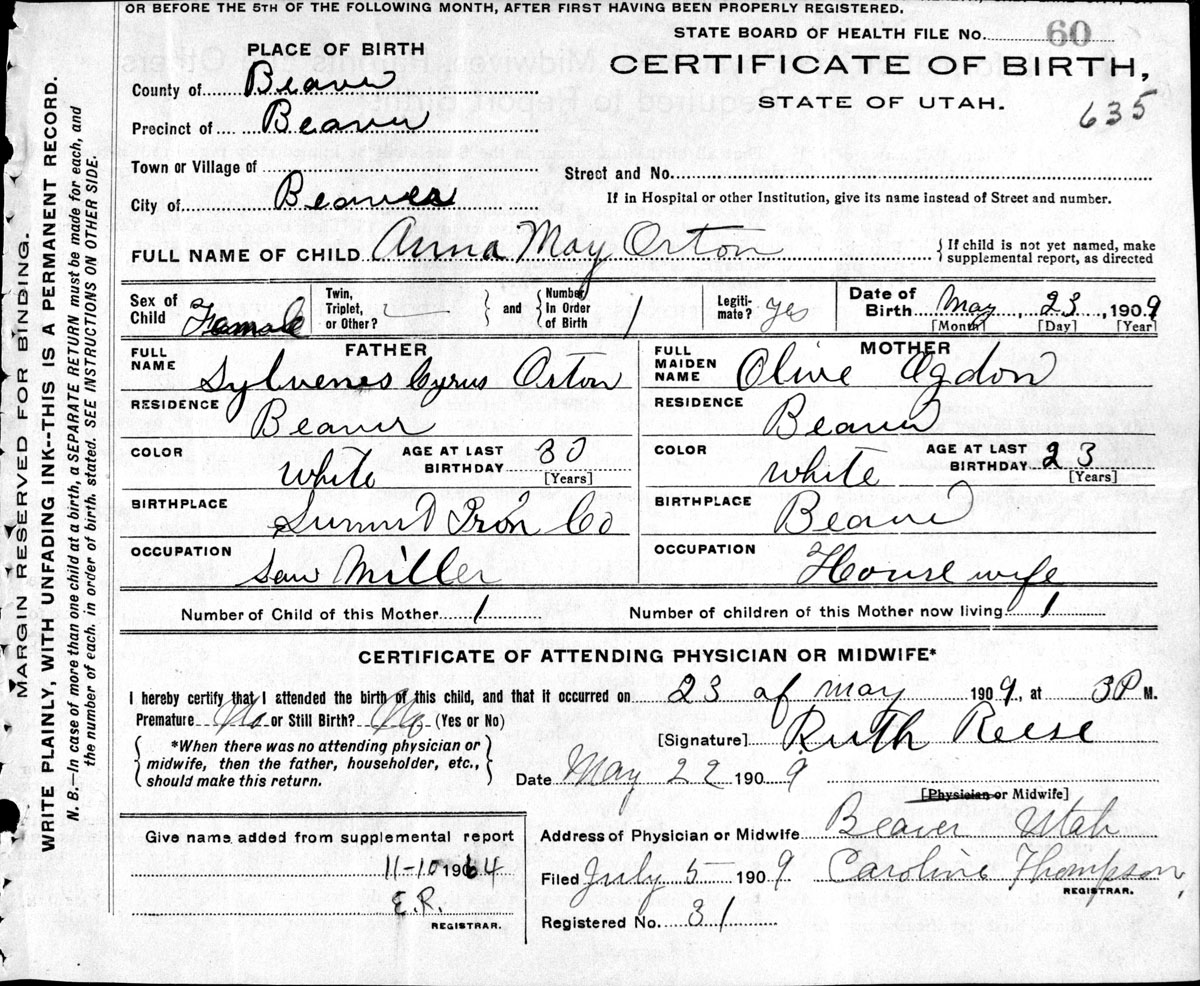 OR BEFORE THE 5TH OF THE FOLLOWING MONTH, AFTER FIRST HAVING BEEN PROPERLY REGISTERED.
STATE BOARD OF HEALTH FILE No. 60
CERTIFICATE OF BIRTH,
STATE OF UTAH.
635
PLACE OF BIRTH
County of Beaver
Precinct of Beaver
Town or Village of
City of Beaver
Street and No.
If in Hospital or other Institution, give its name instead of Street and number.
FULL NAME OF CHILD Anna May Orton
{If child is not yet named, make
supplemental report, as directed
Sex of Child Female
Twin, Triplet, or Other? } and { Number In Order of Birth 1
Legiti-mate? yes
Date of Birth May, 23, 1909
[Month] [Day] [Year]
FATHER
FULL NAME Sylvenes Cyrus Orton
RESIDENCE Beaver
COLOR White AGE AT LAST BIRTHDAY 30 [Years]
BIRTHPLACE Summit Iron Co
OCCUPATION Saw Miller
MOTHER
FULL MAIDEN NAME Olive Ogdon
RESIDENCE Beaver
COLOR White AGE AT LAST BIRTHDAY 23 [Years]
BIRTHPLACE Beaver
OCCUPATION House wife
Number of Child of this Mother 1
Number of children of this Mother now living 1
CERTIFICATE OF ATTENDING PHYSICIAN OR MIDWIFE*
I hereby certify that I attended the birth of this child, and that it occurred on 23 of May 1909, at 3P M.
Premature No or Still Birth? No (Yes or No)
[Signature] Ruth Reese
{*When there was no attending physician or
midwife, then the father, householder, etc.,
should make this return.}
Date May 22 1909
[Physician or Midwife]
Give name added from supplemental report
11-10 1964
E.R.
REGISTRAR.
Address of Physician or Midwife Beaver Utah
Filed July 5 1909 Caroline Thompson,
REGISTRAR.
Registered No. 31
MARGIN RESERVED FOR BINDING.
WRITE PLAINLY, WITH UNFADING INK--THIS IS A PERMANENT RECORD.
N. B.—In case of more than one child at a birth, a SEPARATE RETURN must be made for each, and
the number of each, in order of birth, stated. SEE INSTRUCTIONS ON OTHER SIDE.